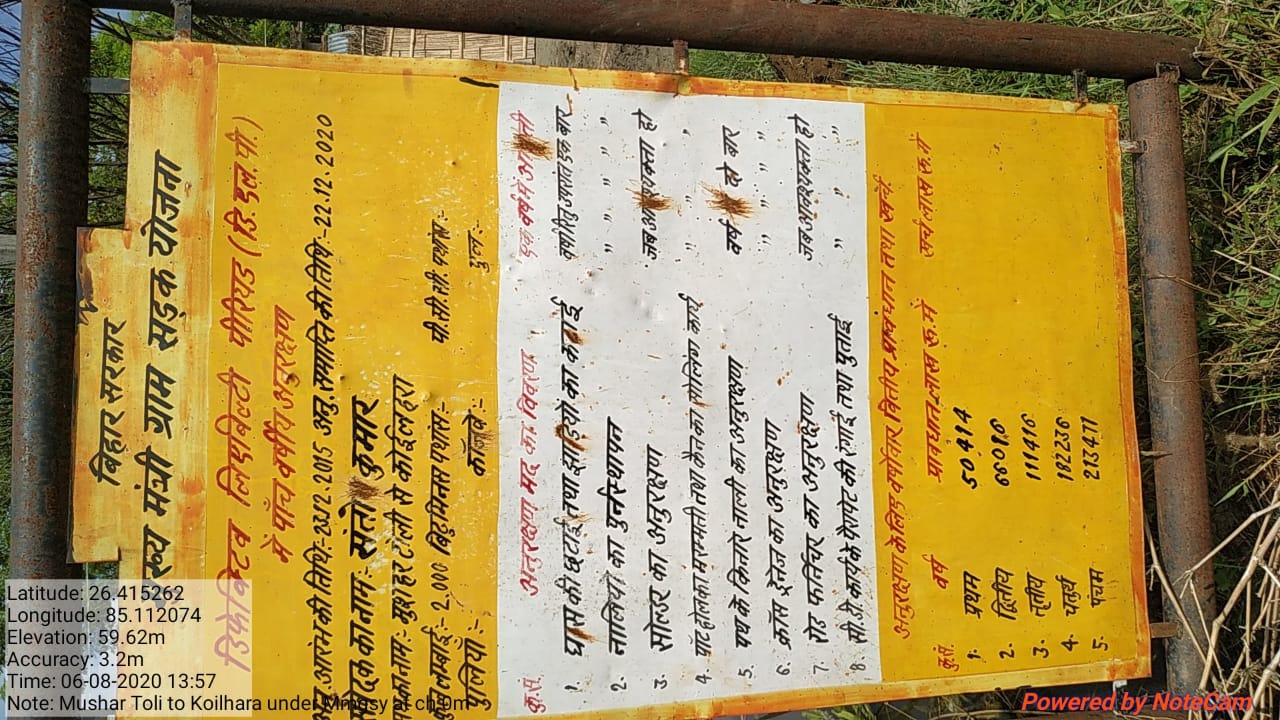 बिहार सरकार
मुख्य मंत्री ग्राम सड़क योजना
डिफेक्टिव लिएबिल्टी पीरियड (डि.इल.पी.)
में पाँच वर्षीय अनुरक्षण
आरंभ की तिथि:- 23.12.2015 अनु. समाप्ति की तिथि:- 22.12.2020
का नाम:- संतोष कुमार
का नाम:- मुशहर टोली से कोइलहरा
कुल लम्बाई:- 2.000 बिटुमिनस पथांस:- पी.सी.सी. पथांस:-
पुलियाँ:- कॉजवे:- पुल:-
क्र.सं. अनुरक्षण मद का विवरण एक वर्ष में
1. घास की छटाई तथा झाड़ियों का कटाई वर्षा ऋतु के बाद एक बार
2. नालियों का पुर्नस्थापन " " " " "
3. सोल्डर का अनुरक्षण जब भी आवश्यक हो
4. पॉट होल का मरम्मती तथा कैरेज का सीलिंग कार्य " " "
5. पथ के किनारे नाली का अनुरक्षण वर्ष में दो बार
6. क्रॉस ड्रेनेज का अनुरक्षण " " " "
7. रोड फर्निचर का अनुरक्षण जब भी आवश्यक हो
8. सी.डी वर्क के पैरापेट की रंगाई तथा पुताई " " "
क्र.सं. वर्ष प्राक्कलित लाख रू. में
1. प्रथम 50414
2. द्वितीय 68090
3. तृतीय 111416
4. चतुर्थ 182238
5. पंचम 213471
Latitude: 26.415262
Longitude: 85.112074
Elevation: 59.62m
Accuracy: 3.2m
Time: 06-08-2020 13:57
Note: Mushar Toli to Koilhara under Mmgsy at ch 0m
Powered by NoteCam